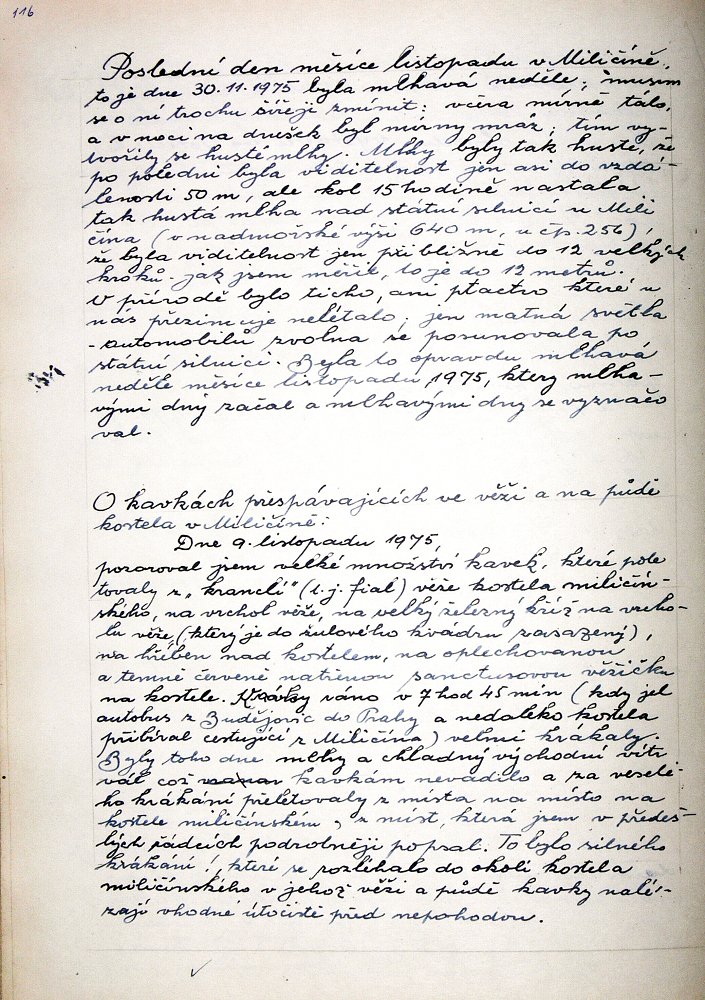 116
Poslední den měsíce listopadu v Miličíně,
to je dne 30.11.1975 byla mlhavá neděle; musím
se o ní trochu šířeji zmínit: včera mírně tálo,
a v noci na dnešek byl mírný mráz; tím vy-
tvořily se husté mlhy. Mlhy byly tak husté, že
po poledni byla viditelnost jen asi do vzdá-
lenosti 50 m, ale kol 15 hodině nastala
tak hustá mlha nad státní silnicí u Mili
čína (v nadmořské výši 640 m, u čp. 256),
že byla viditelnost jen přibližně do 12 velkých
kroků - jak jsem měřil, to je do 12 metrů.
V přírodě bylo ticho, ani ptactvo které u
nás přezimuje nelétalo; jen matná světla
- automobilů zvolna se posunovala po
státní silnici. Byla to opravdu mlhavá
neděle měsíce listopadu, 1975, který mlha-
vými dny začal a mlhavými dny se vyznačo
val.
O kavkách přespávajících ve věži a na půdě
kostela v Miličíně:
Dne 9. listopadu 1975,
pozoroval jsem velké množství kavek, které pole
tovaly z „kranclí" (t.j. fial) věže kostela miličín-
ského, na vrchol věže, na velký železný kříž na vrcho-
lu věže, (který je do žulového kvádru zasazený),
na hřeben nad kostelem, na oplechovanou
a temně červeně natřenou sanctusovou věžičku
na kostele. Kavky ráno v 7 hod 45 min (kdy jel
autobus z Budějovic do Prahy a nedaleko kostela
přibíral cestující z Miličína) velmi krákaly.
Byly toho dne mlhy a chladný východní vítr
vál což kavkám nevadilo a za veselé-
ho krákání přeletovaly z místa na místo na
kostele miličínském, z míst, která jsem v předeš-
lých řádcích podrobněji popsal. To bylo silného
krákání!, které se rozléhalo do okolí kostela
miličínského v jehož věži a půdě kavky nalé-
zají vhodné útočiště před nepohodou.